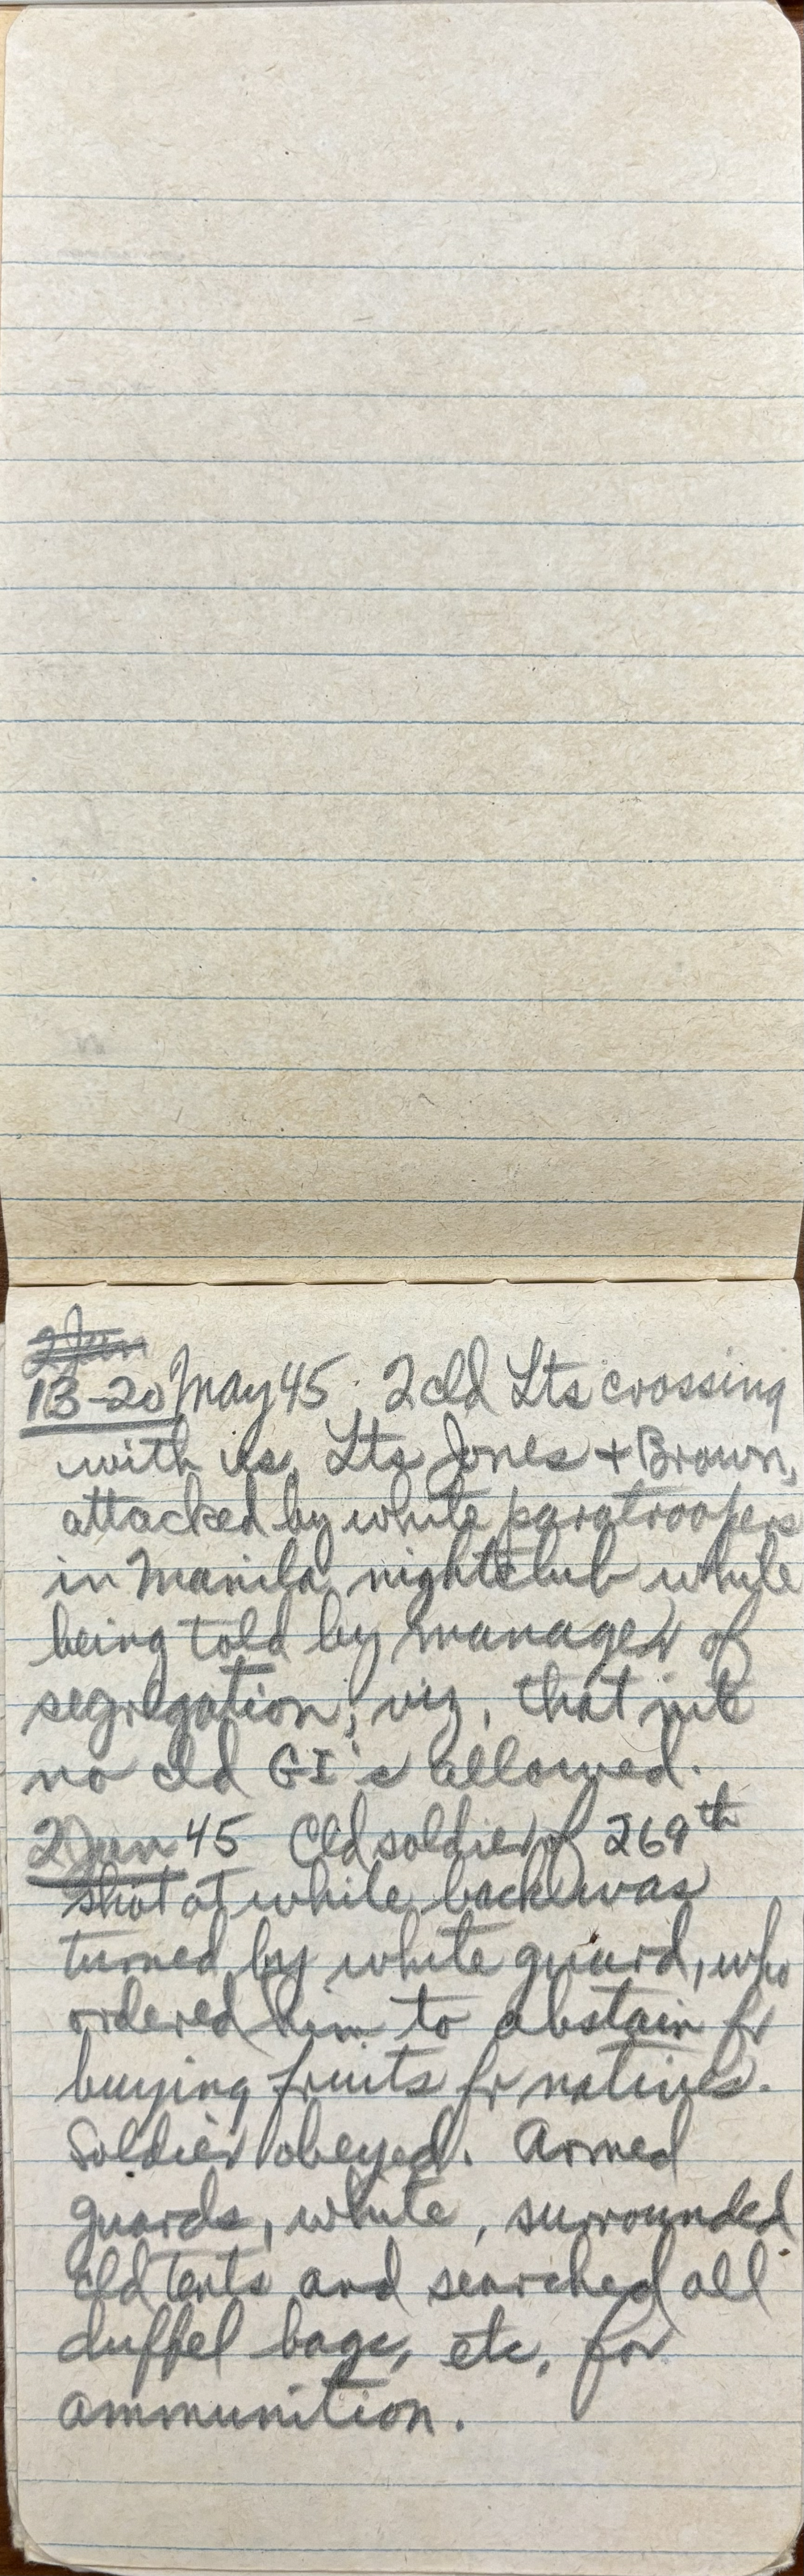 2 Jun
13-20 May 45. 2 cld Lts crossing
with us, Lts Jones + Brown,
attacked by white paratroopers
in Manila nightclub while
being told by manager of
segregation; viz, that nite
no cld GI's allowed.
2 Jun 45 Cld soldier of 269th
shot at while back was
turned by white guard, who
ordered him to abstain fr
buying fruits fr natives.
Soldier obeyed. Armed
guards, white, surrounded
cld tents and searched all
duffel bags, etc, for
ammunition.